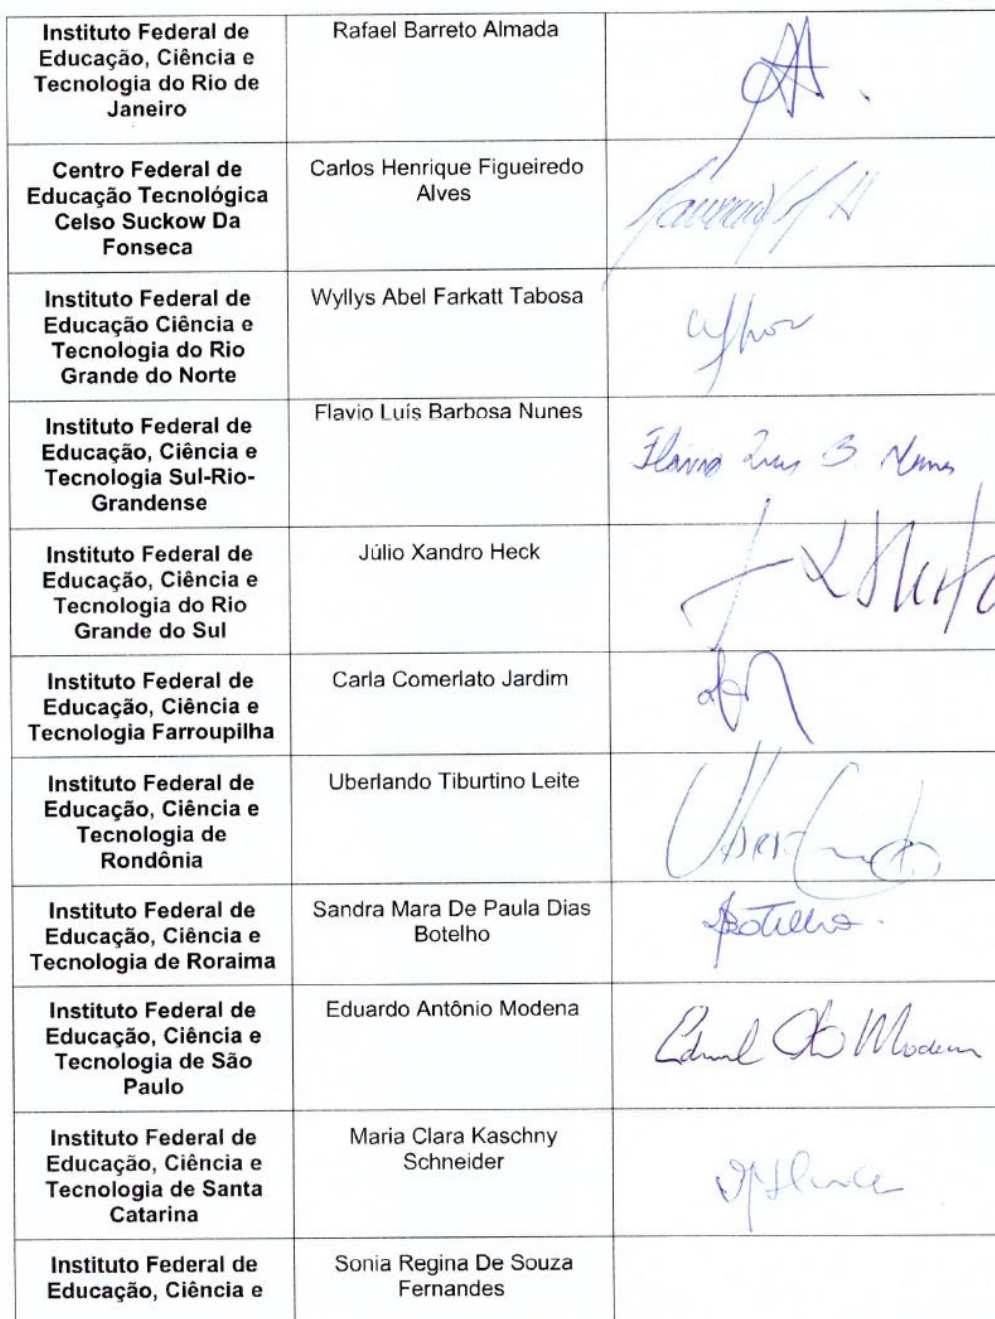 Instituto Federal de
Educação, Ciência e
Tecnologia do Rio de
Janeiro
Rafael Barreto Almada
Centro Federal de
Educação Tecnológica
Celso Suckow Da
Fonseca
Carlos Henrique Figueiredo
Alves
Instituto Federal de
Educação Ciência e
Tecnologia do Rio
Grande do Norte
Wyllys Abel Farkatt Tabosa
Instituto Federal de
Educação, Ciência e
Tecnologia Sul-Rio-
Grandense
Flavio Luís Barbosa Nunes
Flávio Luis B. Nunes
Instituto Federal de
Educação, Ciência e
Tecnologia do Rio
Grande do Sul
Júlio Xandro Heck
Instituto Federal de
Educação, Ciência e
Tecnologia Farroupilha
Carla Comerlato Jardim
Instituto Federal de
Educação, Ciência e
Tecnologia de
Rondônia
Uberlando Tiburtino Leite
Instituto Federal de
Educação, Ciência e
Tecnologia de Roraima
Sandra Mara De Paula Dias
Botelho
Botelho.
Instituto Federal de
Educação, Ciência e
Tecnologia de São
Paulo
Eduardo Antônio Modena
Modena
Instituto Federal de
Educação, Ciência e
Tecnologia de Santa
Catarina
Maria Clara Kaschny
Schneider
Instituto Federal de
Educação, Ciência e
Sonia Regina De Souza
Fernandes